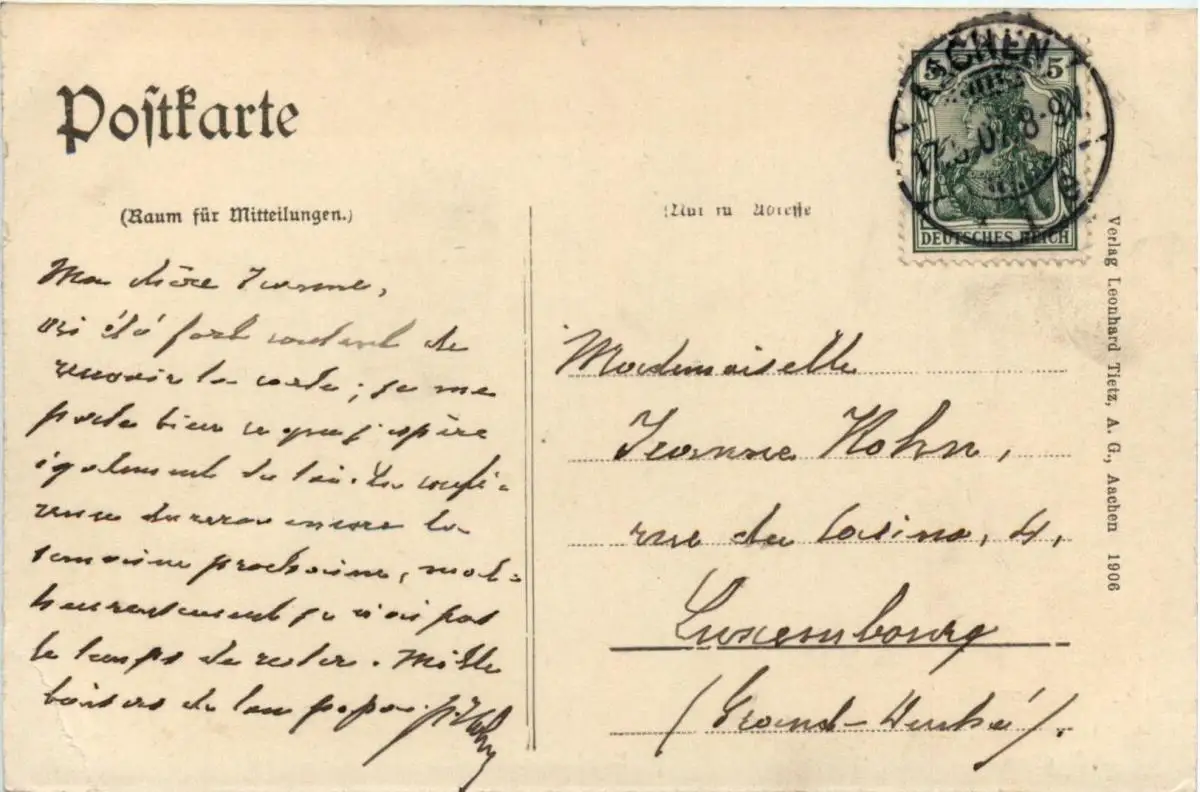 Postkarte
(Raum für Mitteilungen.)
Ma chère Jeanne,
ai été fort content de
recevoir ta carte; je me
porte bien ce que j'espère
également de toi. La confé-
rence durera encore la
semaine prochaine, mal-
heureusement je n'ai pas
le temps de rester. Mille
baisers de ton papa.
Adresse
5 5
DEUTSCHES REICH
AACHEN
8-9N.
* 1 e
Mademoiselle
Jeanne Kohn,
rue du Casino, 4,
Luxembourg
(Grand-Duché).
Verlag Leonhard Tietz, A. G., Aachen 1906